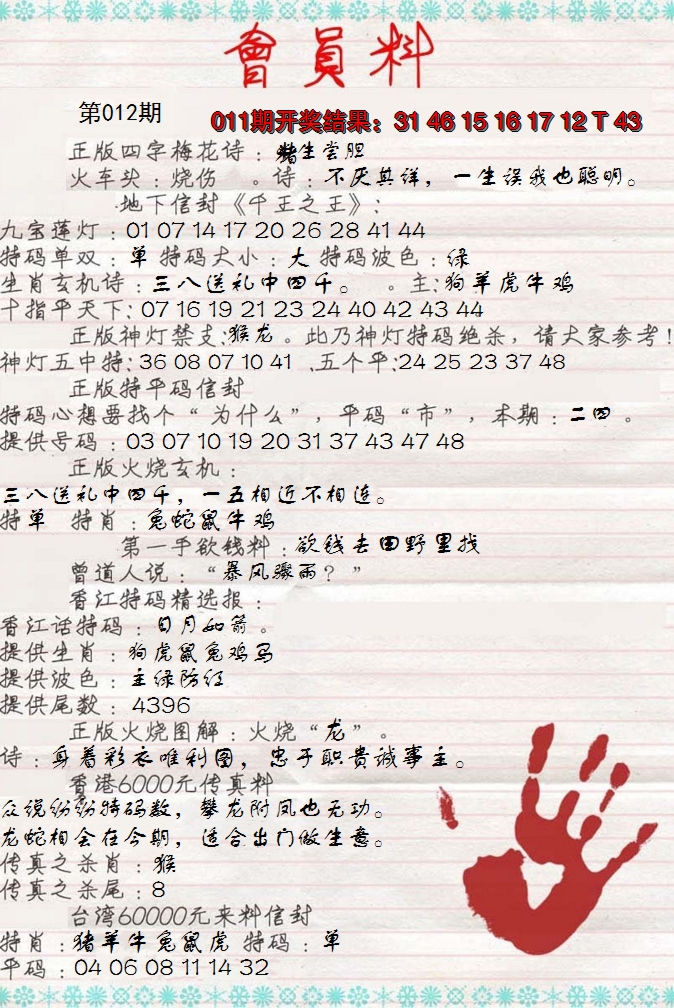 會員料
第012期
011期开奖结果：31 46 15 16 17 12 T 43
正版四字梅花诗：猪生尝胆
火车头：烧伤 。诗：不厌其详，一生误我也聪明。
地下信封《千王之王》：
九宝莲灯：01 07 14 17 20 26 28 41 44
特码单双：单 特码大小：大 特码波色：绿
生肖玄机诗：三八送礼中四千。 。主:狗羊虎牛鸡
十指平天下:07 16 19 21 23 24 40 42 43 44
正版神灯禁支:猴龙。此乃神灯特码绝杀，请大家参考!
神灯五中特:36 08 07 10 41 .五个平:24 25 23 37 48
正版特平码信封
特码心想要找个“为什么”，平码“市”，本期：二四。
提供号码：03 07 10 19 20 31 37 43 47 48
正版火烧玄机：
三八送礼中四千，一五相近不相连。
特单 特肖：兔蛇鼠牛鸡
第一手欲钱料：欲钱去田野里找
曾道人说：“暴风骤雨？”
香江特码精选报：
香江话特码：日月如箭。
提供生肖：狗虎鼠兔鸡马
提供波色：主绿防红
提供尾数：4396
正版火烧图解：火烧“龙”。
诗：身着彩衣唯利图，忠于职贵诚事主。
香港6000元传真料
众说纷纷特码数，攀龙附凤也无功。
龙蛇相会在今期，适合出门做生意。
传真之杀肖：猴
传真之杀尾：8
台湾60000元来料信封
特肖:猪羊牛兔鼠虎 特码：单
平码：04 06 08 11 14 32